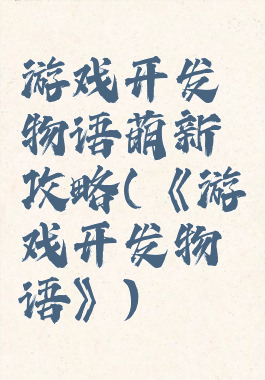 游戏开发
物语萌新
攻略(《游
戏开发物
语》)